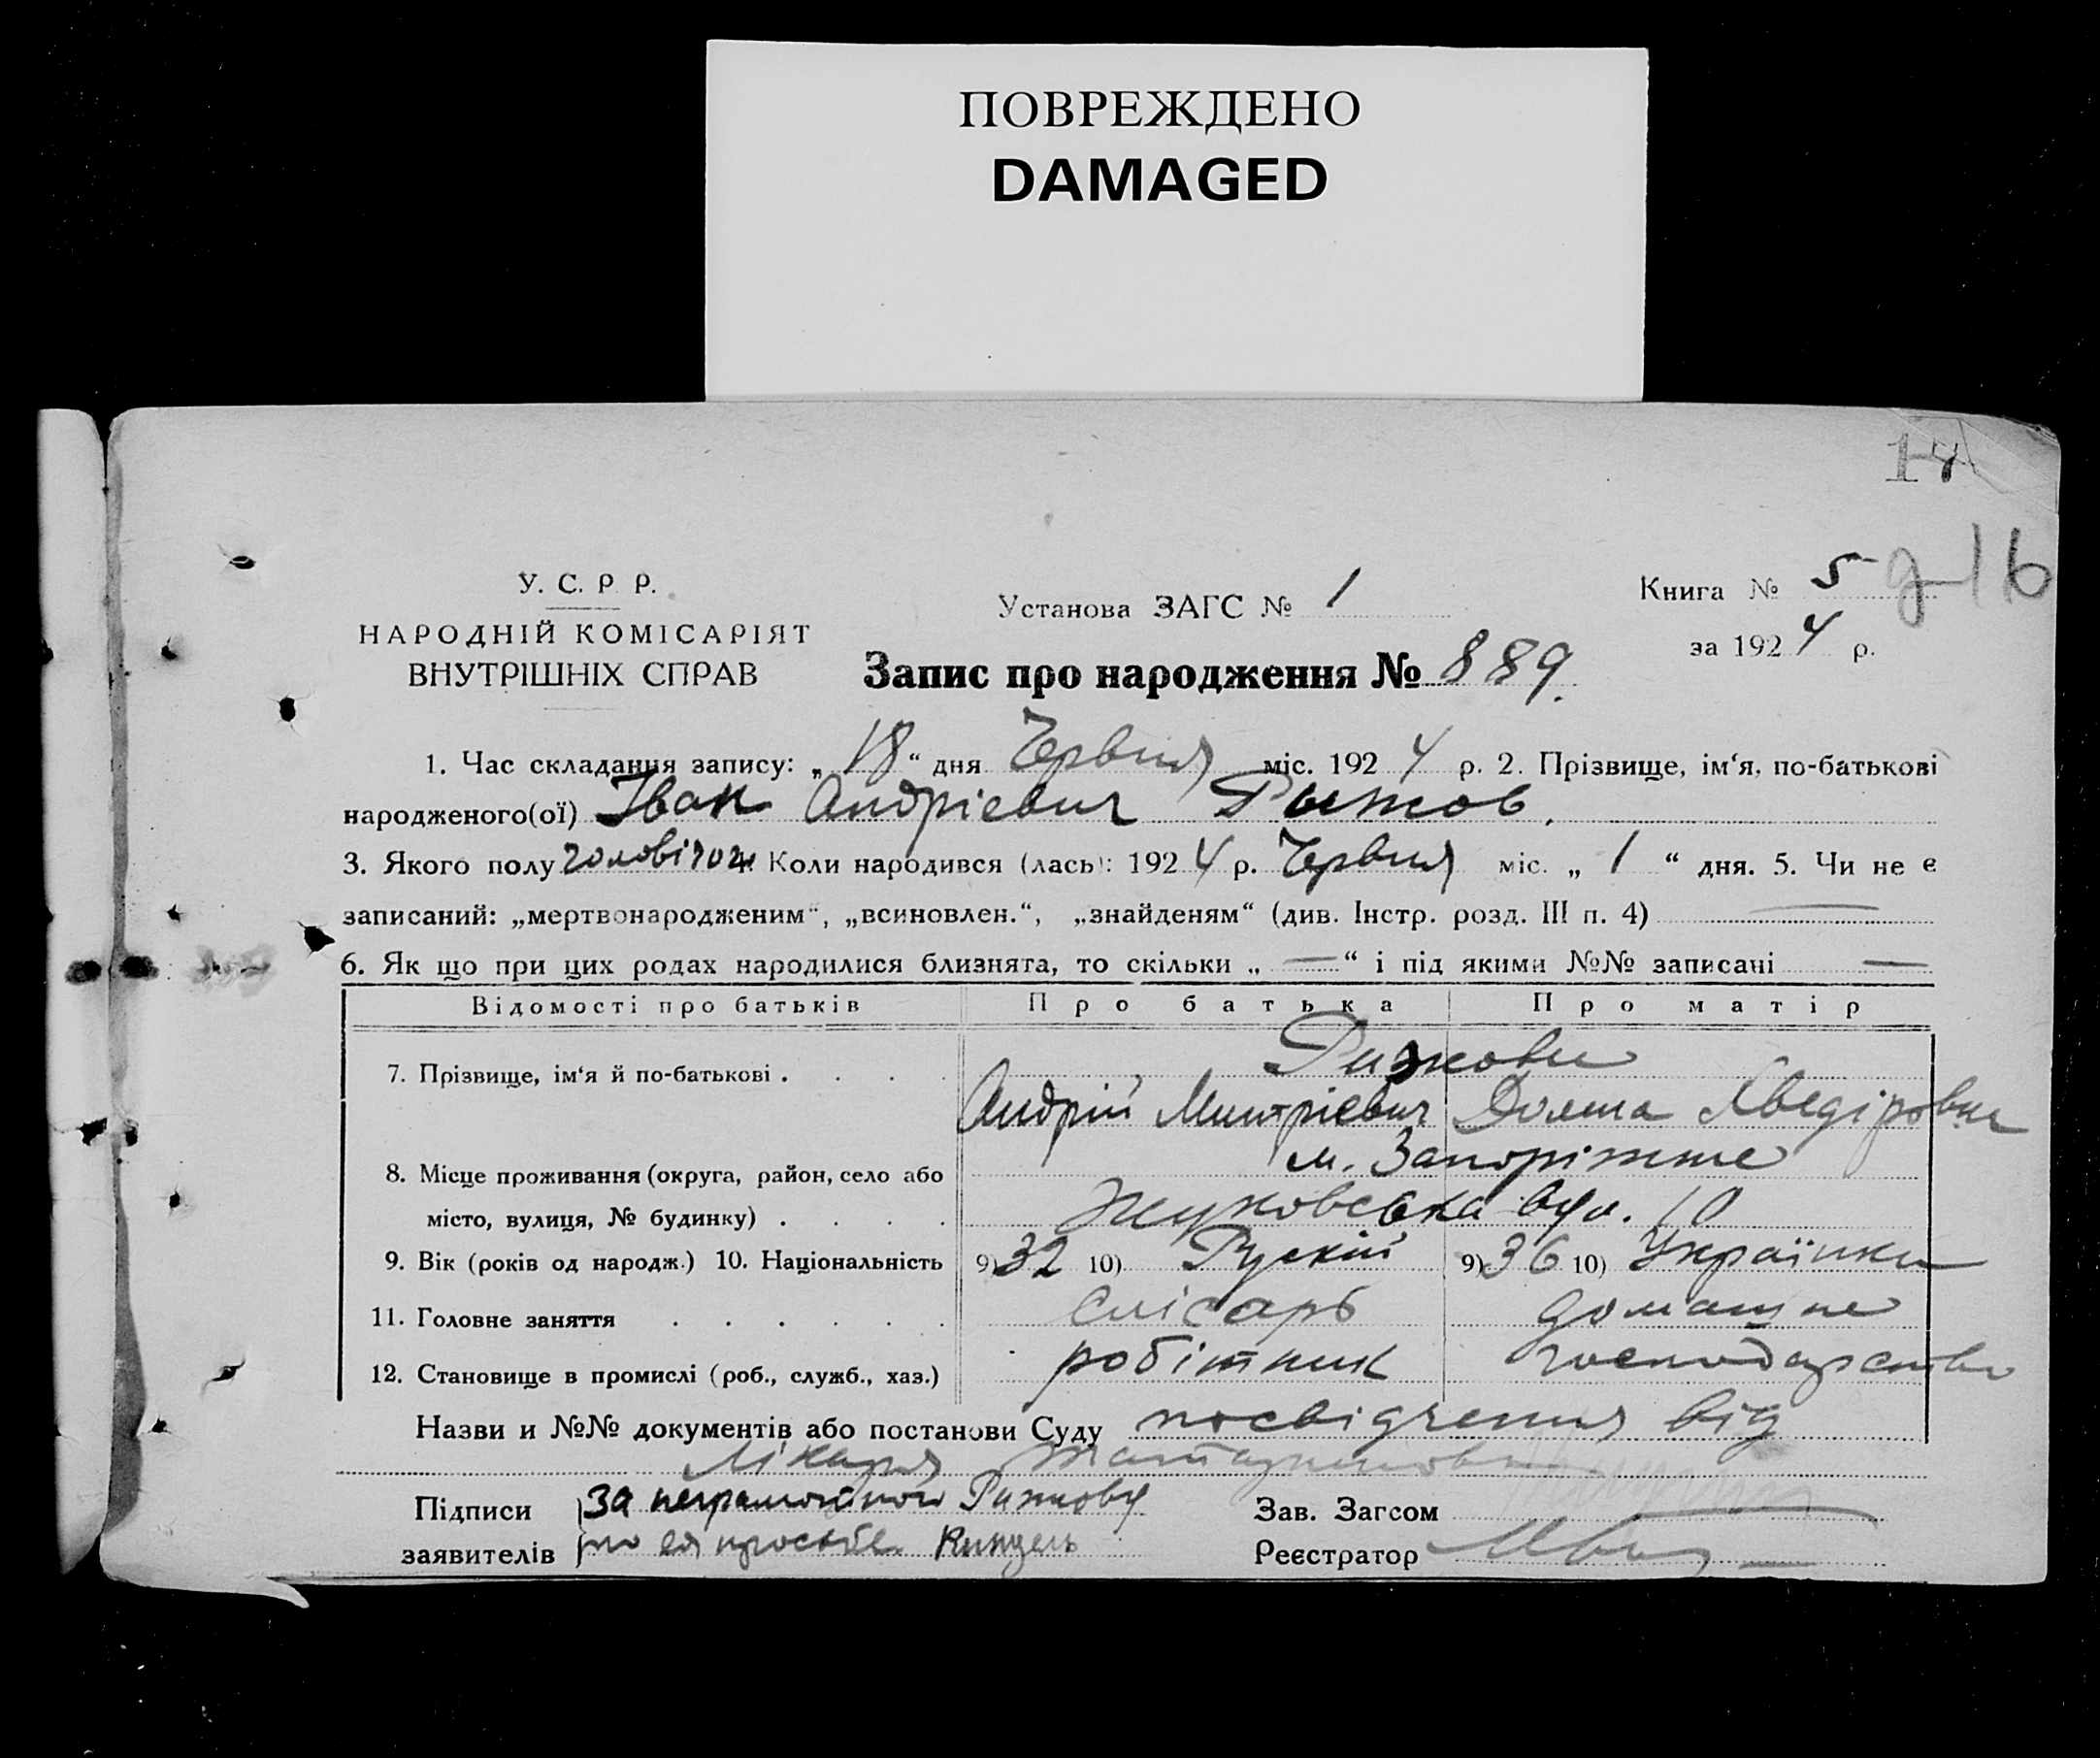 ПОВРЕЖДЕНО
DAMAGED
14
У. С. Р Р.
Установа ЗАГС № 1
Книга № 5
д 16
НАРОДНІЙ КОМІСАРІЯТ
за 1924 р.
ВНУТРІШНІХ СПРАВ
Запис про народження № 889.
1. Час складання запису: „18“ дня Червня міс. 1924 р. 2. Прізвище, ім‘я, по-батькові
народженого(ої) Іван Андрієвич Рыжов.
3. Якого полу чоловічоі 4. Коли народився (лась): 1924 р. Червня міс. „1“ дня. 5. Чи не є
записаний: „мертвонародженим“, „всиновлен.“, „знайденям“ (див. Інстр. розд. III п. 4) —
6. Як що при цих родах народилися близнята, то скільки „—“ і під якими №№ записані —
Відомості про батьків Про батька Про матір
Рижови
7. Прізвище, ім‘я й по-батькові . . . .
Андрій Митрієвич
м. Запоріжже
8. Місце проживання (округа, район, село або
місто, вулиця, № будинку) . . . . Жуковська вул. 10
9. Вік (років од народж.) 10. Національність 9) 32 10) Рускій 9) 36 10) Українка
11. Головне заняття . . . . . . Слісарь домашне
12. Становище в промислі (роб., служб., хаз.) робітник господарство
Назви и №№ документів або постанови Суду посвідчення від
Лікаря
Підписи За неграмотною Рижову Зав. Загсом
заявителів по ея просьбе Реєстратор